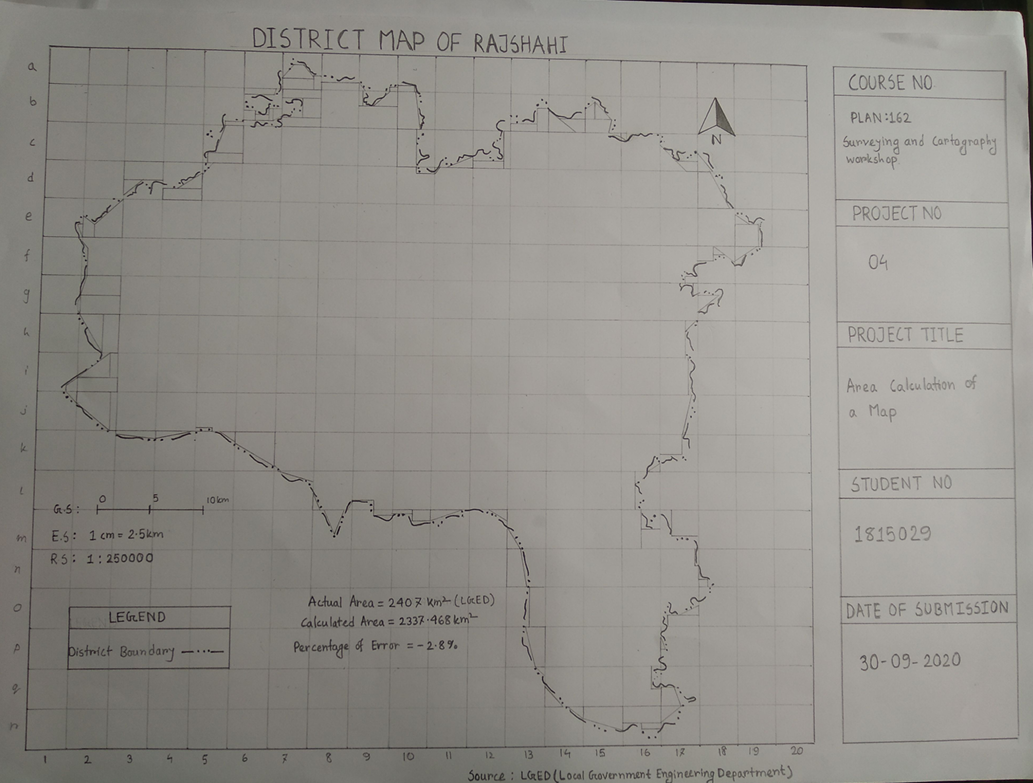 DISTRICT MAP OF RAJSHAHI
a
b
c
d
e
f
g
h
i
j
k
l
m
n
o
p
q
r
N
G.S: 0 5 10km
E.S: 1 cm = 2.5km
R.S: 1:250000
LEGEND
District Boundary
Actual Area = 2407 km² (LGED)
Calculated Area = 2337.468km²
Percentage of Error = -2.8%
1 2 3 4 5 6 7 8 9 10 11 12 13 14 15 16 17 18 19 20
Source: LGED (Local Government Engineering Department)
COURSE NO
PLAN:162
Surveying and Cartography
workshop
PROJECT NO
04
PROJECT TITLE
Area Calculation of
a Map
STUDENT NO
1815029
DATE OF SUBMISSION
30-09-2020